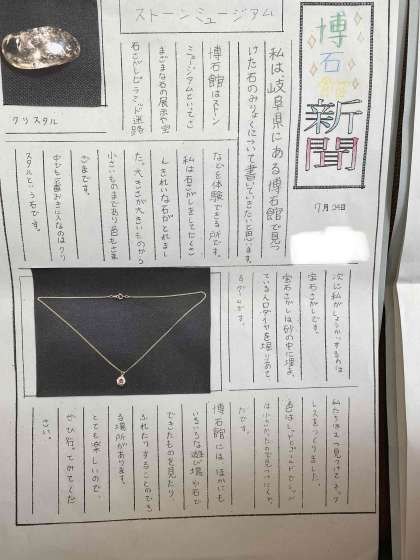 博石館
新聞
7月
ストーンミュージアム
クリスタル
私は、岐阜県にある博石館で見つ
けた石のみりょくについて書いていきたいと思います。
博石館はストーン
ミュージアムといってさ
まざまな石の展示や宝
石さがしピラミッド迷路
などを体験できる所です。
私は石さがしをしてたくさ
んきれいな石がとれまし
た。大きさが大きいものから
小さいものまであり色もさま
ざまです。
中でも一番おきに入なのはクリ
スタルという石です。
次に私がしょうかいするのは
宝石さがしです。
宝石さがしは砂の中に埋ま
っている人口ダイヤを掘りあて
るゲームです。
私たちは見つけてネック
レスをつくりました。
色は
は小さかったので見つけにくか
たです。
博石館にはほかにも
いろいろな遊び場や石で
できたものを見たり、
ふれたりすることのでき
る場所があります。
とても楽しいので、
ぜひ行ってみてくだ
さい。